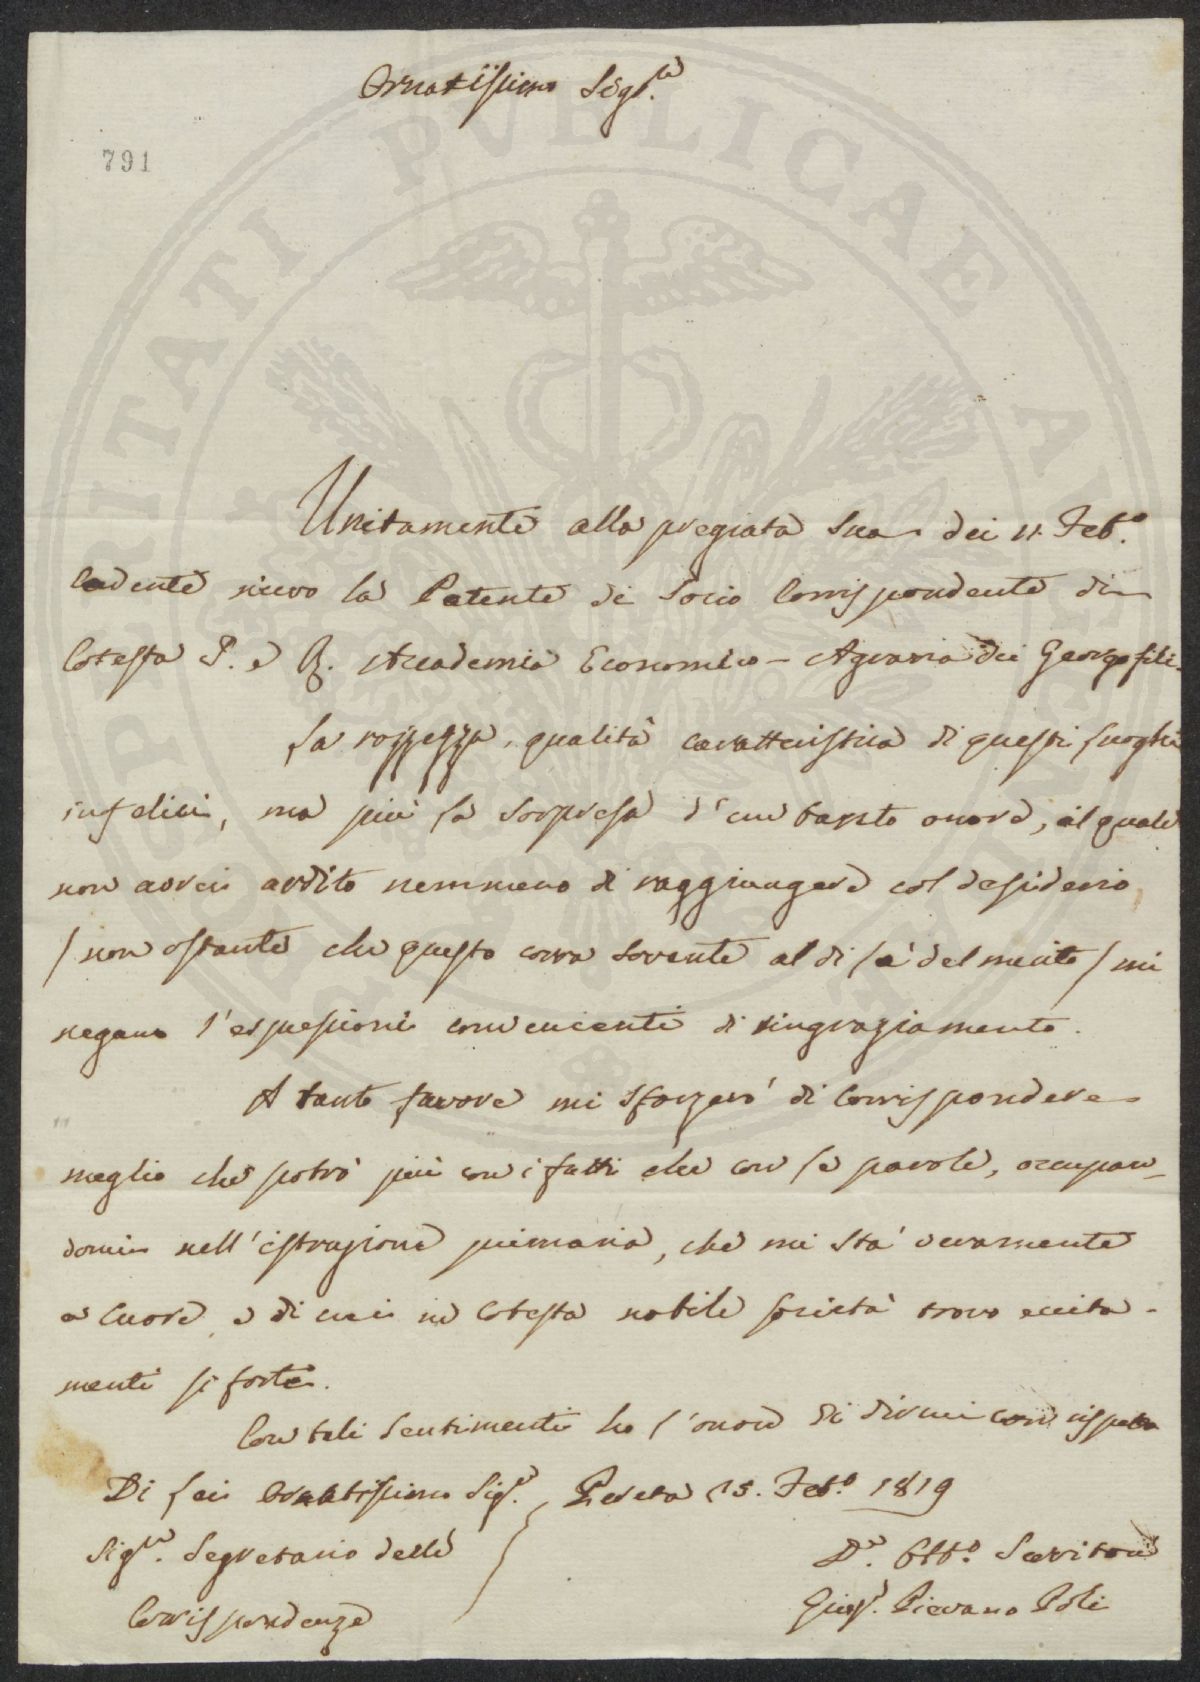 Ornatissimo Sig.re
791
Unitamente alla pregiata Sua dei 11. Feb.o
cadente ricevo la Patente di Socio Corrispondente di
Cotesta I. e R. Accademia Economico-Agraria dei Georgofili.
La rozzezza, qualità caratteristica di questi luoghi
infelici, ma più la sorpresa d'un tanto onore, al quale
non avrei ardito nemmeno di raggiungere col desiderio
/ non ostante che questo corra sovente al di là del merito / mi
negano l'espressioni convenienti di ringraziamento.
A tanto favore mi sforzerò di corrispondere
meglio che potrò più con i fatti che con le parole, occupan-
domi nell'istruzione primaria, che mi stà veramente
a cuore, e di cui in Cotesta nobile società trovo eccita-
menti sì forti.
Con tali sentimenti ho l'onore di dirmi con rispetto
Di Lei Ornatissimo Sig.re Pereta 15. Feb.o 1819
Sig.re Segretario delle
Corrispondenze
D.o Obb.o Servitore
Gius.e Pievano Poli
PVBLICAE